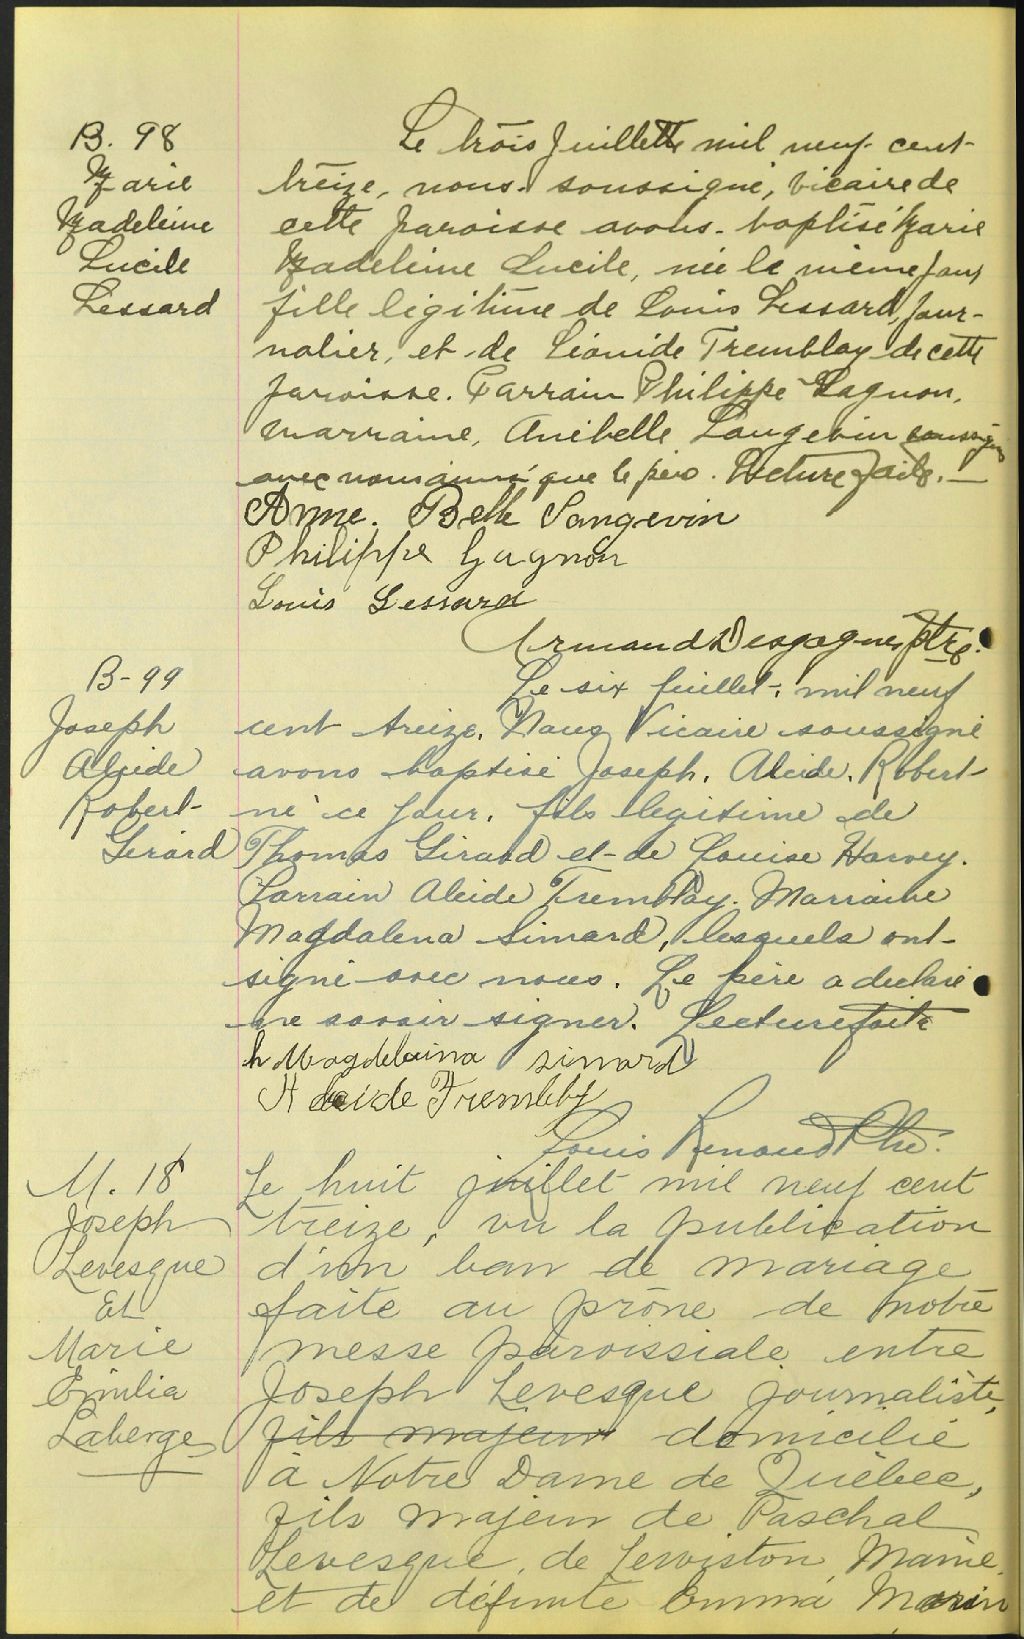 B. 98
Marie
Madeleine
Lucile
Lessard
Le trois Juillett mil neuf cent
treize, nous soussigné, vicaire de
cette paroisse avons baptisé Marie
Madeleine Lucile, née le même jour
fille légitime de Louis Lessard, jour-
nalier, et de Léonide Tremblay de cette
paroisse. Parrain Philippe Gagnon,
marraine, Anibelle Langevin soussignés
avec nous ainsi que le père. Lecture faite. —
Anne. Belle Langevin
Philippe Gagnon
Louis Lessard
Armand Desgagnés ptre.
B-99
Joseph
Alcide
Robert
Girard
Le six juillet, mil neuf
cent treize. Nous Vicaire soussigné
avons baptisé Joseph. Alcide. Robert
né ce jour. fils légitime de
Thomas Girard et de Louise Harvey.
Parrain Alcide Tremblay. Marraine
Magdalena Simard, lesquels ont
signé avec nous. Le père a déclaré
ne savoir signer. Lecture faite
Magdeleina simard
Alcide Trembly
Louis Renaud Ptre.
M. 18
Joseph
Levesque
Et
Marie
Emilia
Laberge
Le huit juillet mil neuf cent
treize, vu la publication
d'un ban de mariage
faite au prône de notre
messe paroissiale entre
Joseph Levesque journaliste,
fils majeur domicilié
à Notre Dame de Québec,
fils majeur de Paschal
Levesque, de Lewiston, Maine,
et de défunte Emma Morin